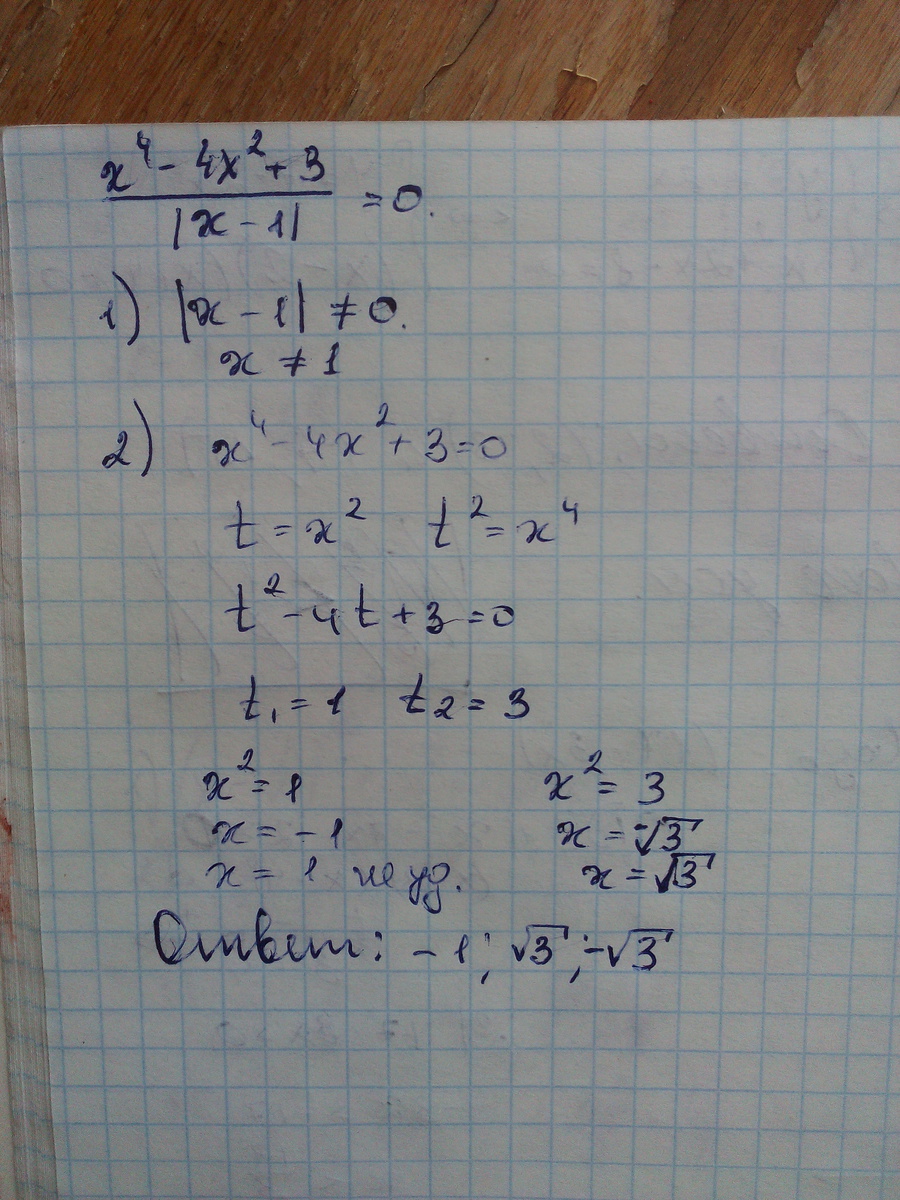 x⁴ - 4x² + 3
|x - 1| = 0.
1) |x - 1| ≠ 0.
x ≠ 1
2) x⁴ - 4x² + 3 = 0
t = x² t² = x⁴
t² - 4t + 3 = 0
t₁ = 1 t₂ = 3
x² = 1 x² = 3
x = -1 x = -√3
x = 1 не уд. x = √3
Ответ: -1; √3; -√3